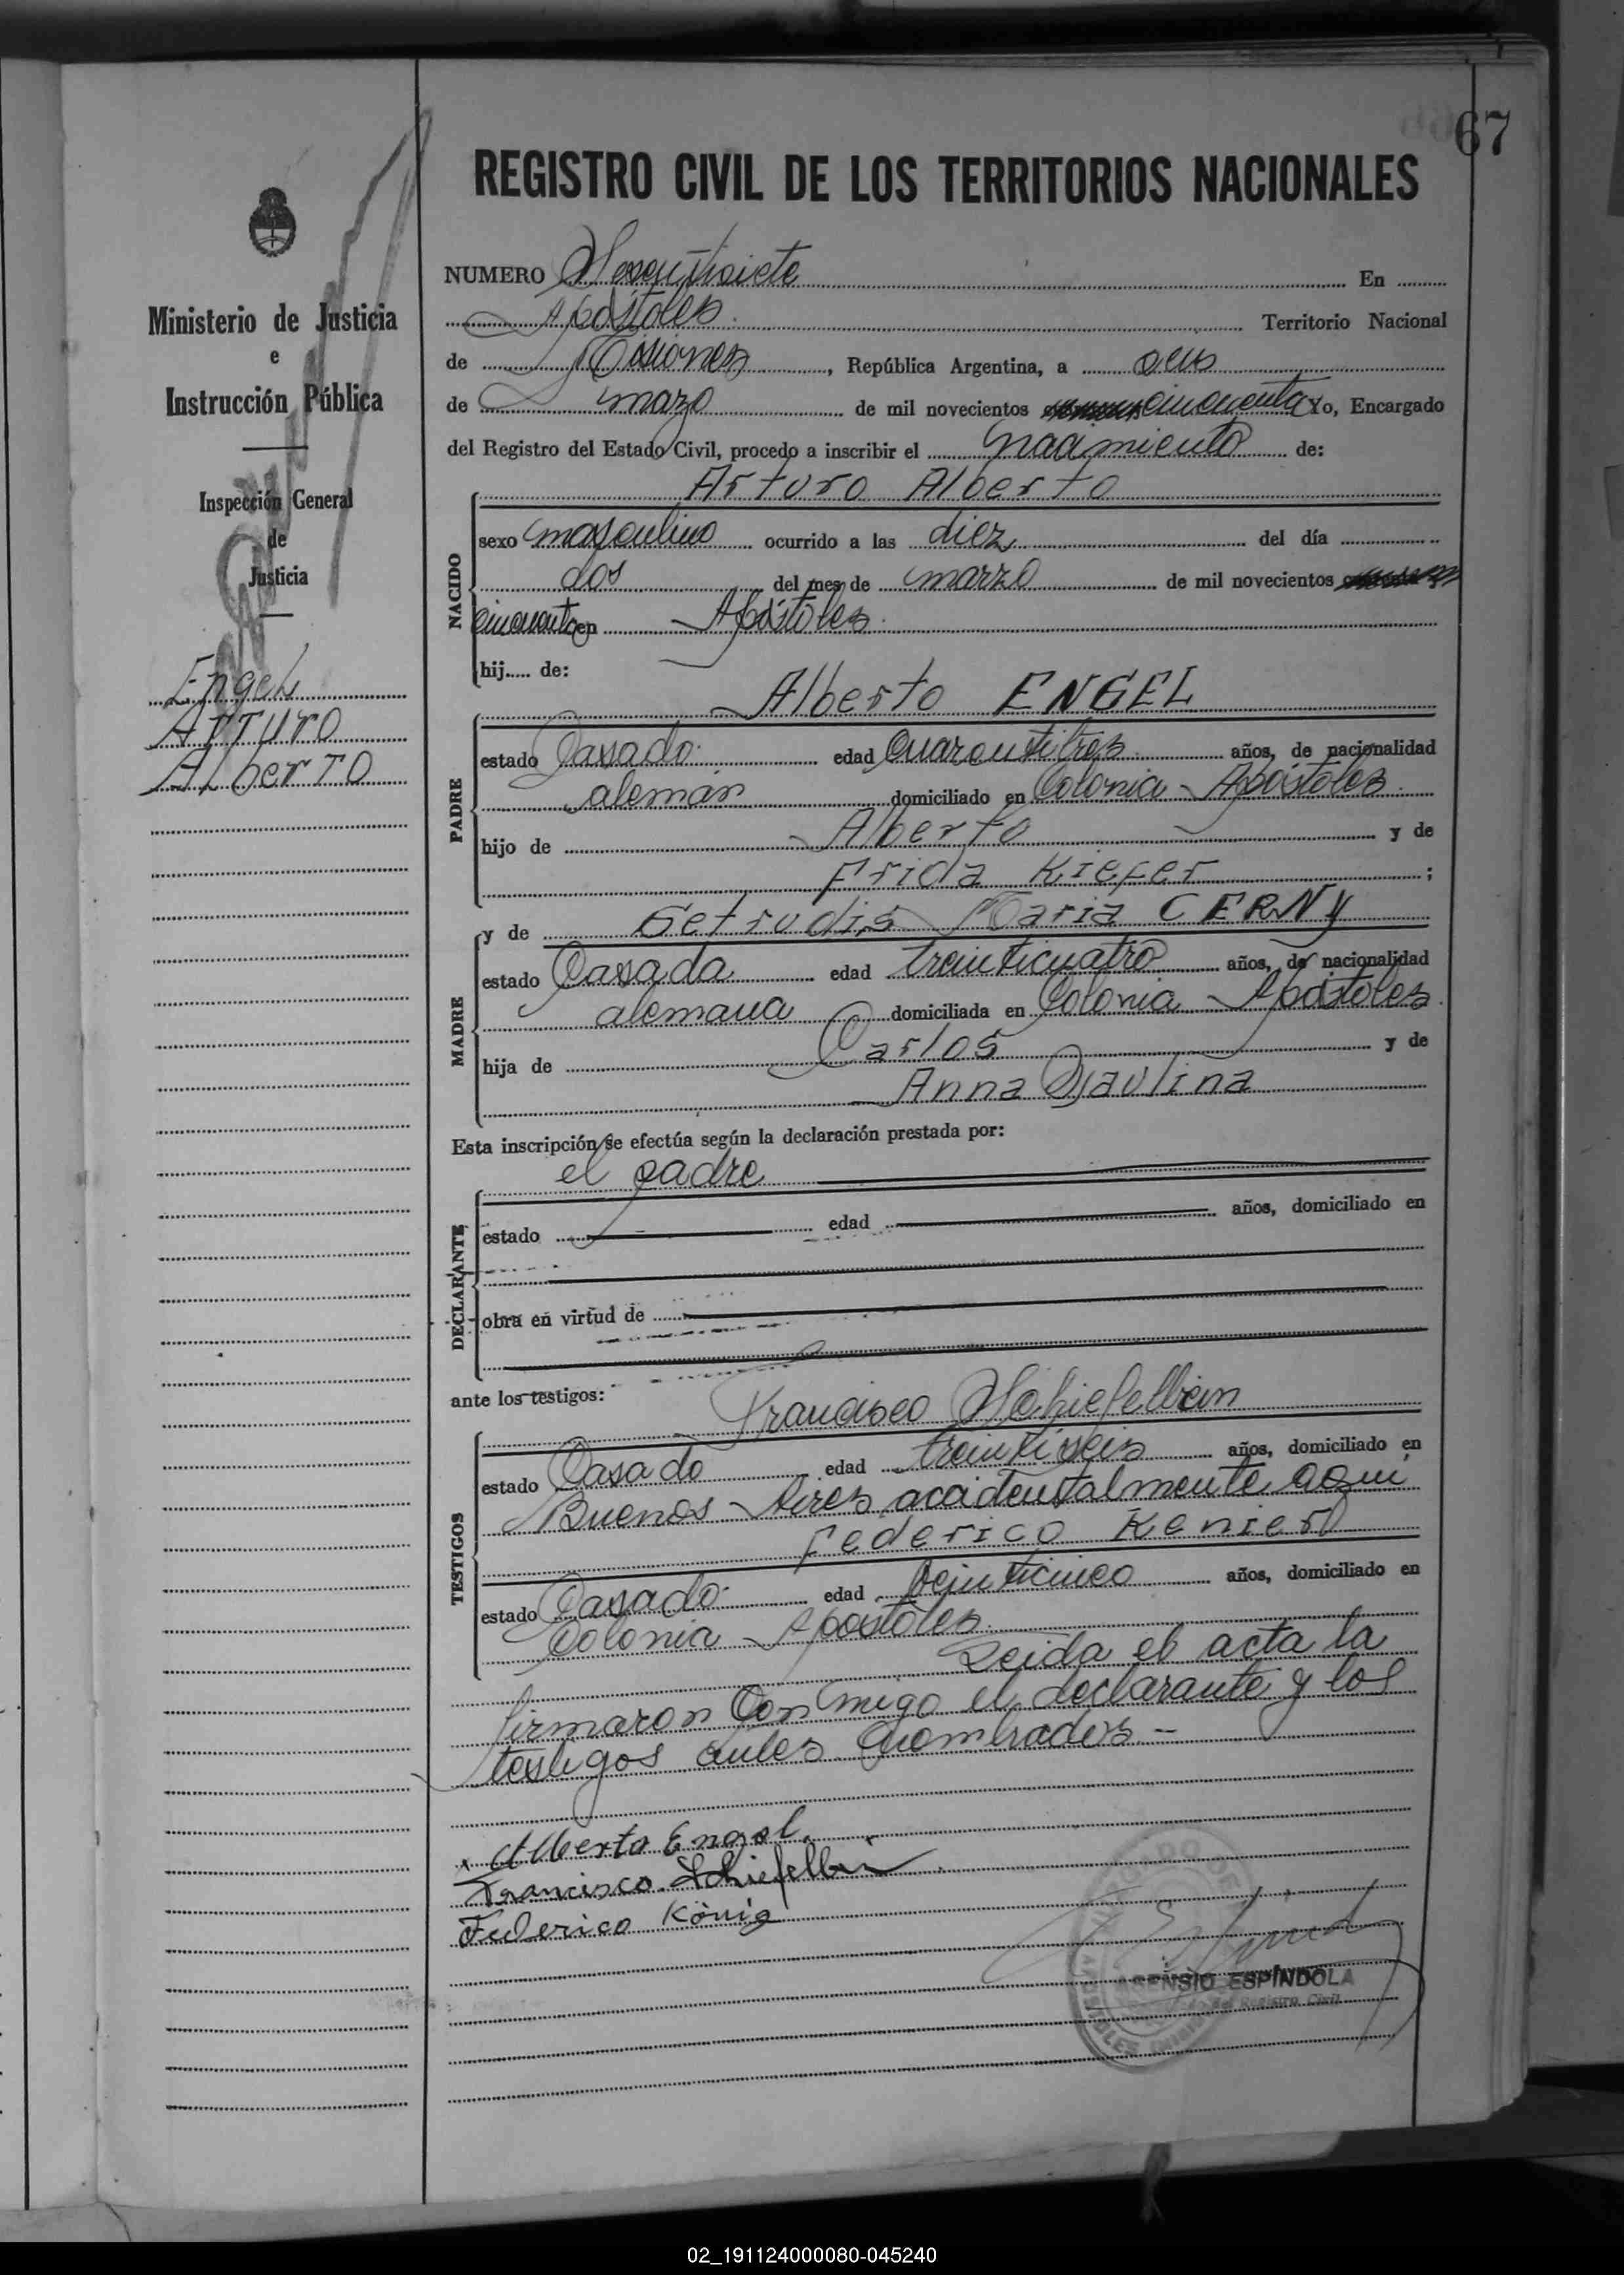 67
REGISTRO CIVIL DE LOS TERRITORIOS NACIONALES
Ministerio de Justicia
e
Instrucción Pública
Inspección General
de
Justicia
Engel
Arturo
Alberto
NUMERO Sesentisiete En
Apóstoles Territorio Nacional
de Misiones, República Argentina, a
de marzo de mil novecientos cincuenta Yo, Encargado
del Registro del Estado Civil, procedo a inscribir el nacimiento de:
Arturo Alberto
NACIDO
sexo masculino ocurrido a las diez del día
dos del mes de marzo de mil novecientos
cincuenta en Apóstoles.
hij..... de:
Alberto ENGEL
PADRE
estado Casado edad cuarentitres años, de nacionalidad
alemán domiciliado en Colonia Apóstoles.
hijo de Alberto y de
Frida Kiefer ;
y de Getrudis Maria CERNY
MADRE
estado Casada edad treinticuatro años, de nacionalidad
alemana domiciliada en Colonia Apóstoles.
hija de Carlos y de
Anna Paulina
Esta inscripción se efectúa según la declaración prestada por:
el padre
DECLARANTE
estado edad años, domiciliado en
obra en virtud de
ante los testigos: Francisco Schiefelbein
TESTIGOS
estado Casado edad treintiseis años, domiciliado en
Buenos Aires accidentalmente aqui
Federico
estado Casado edad veinticinco años, domiciliado en
Colonia Apostoles.
Leida el acta la
firmaron conmigo el declarante y los
testigos antes nombrados -
Alberto Engel.
Francisco Schiefelbein
Federico König
ASENSIO ESPÍNDOLA
del Registro Civil
02_191124000080-045240